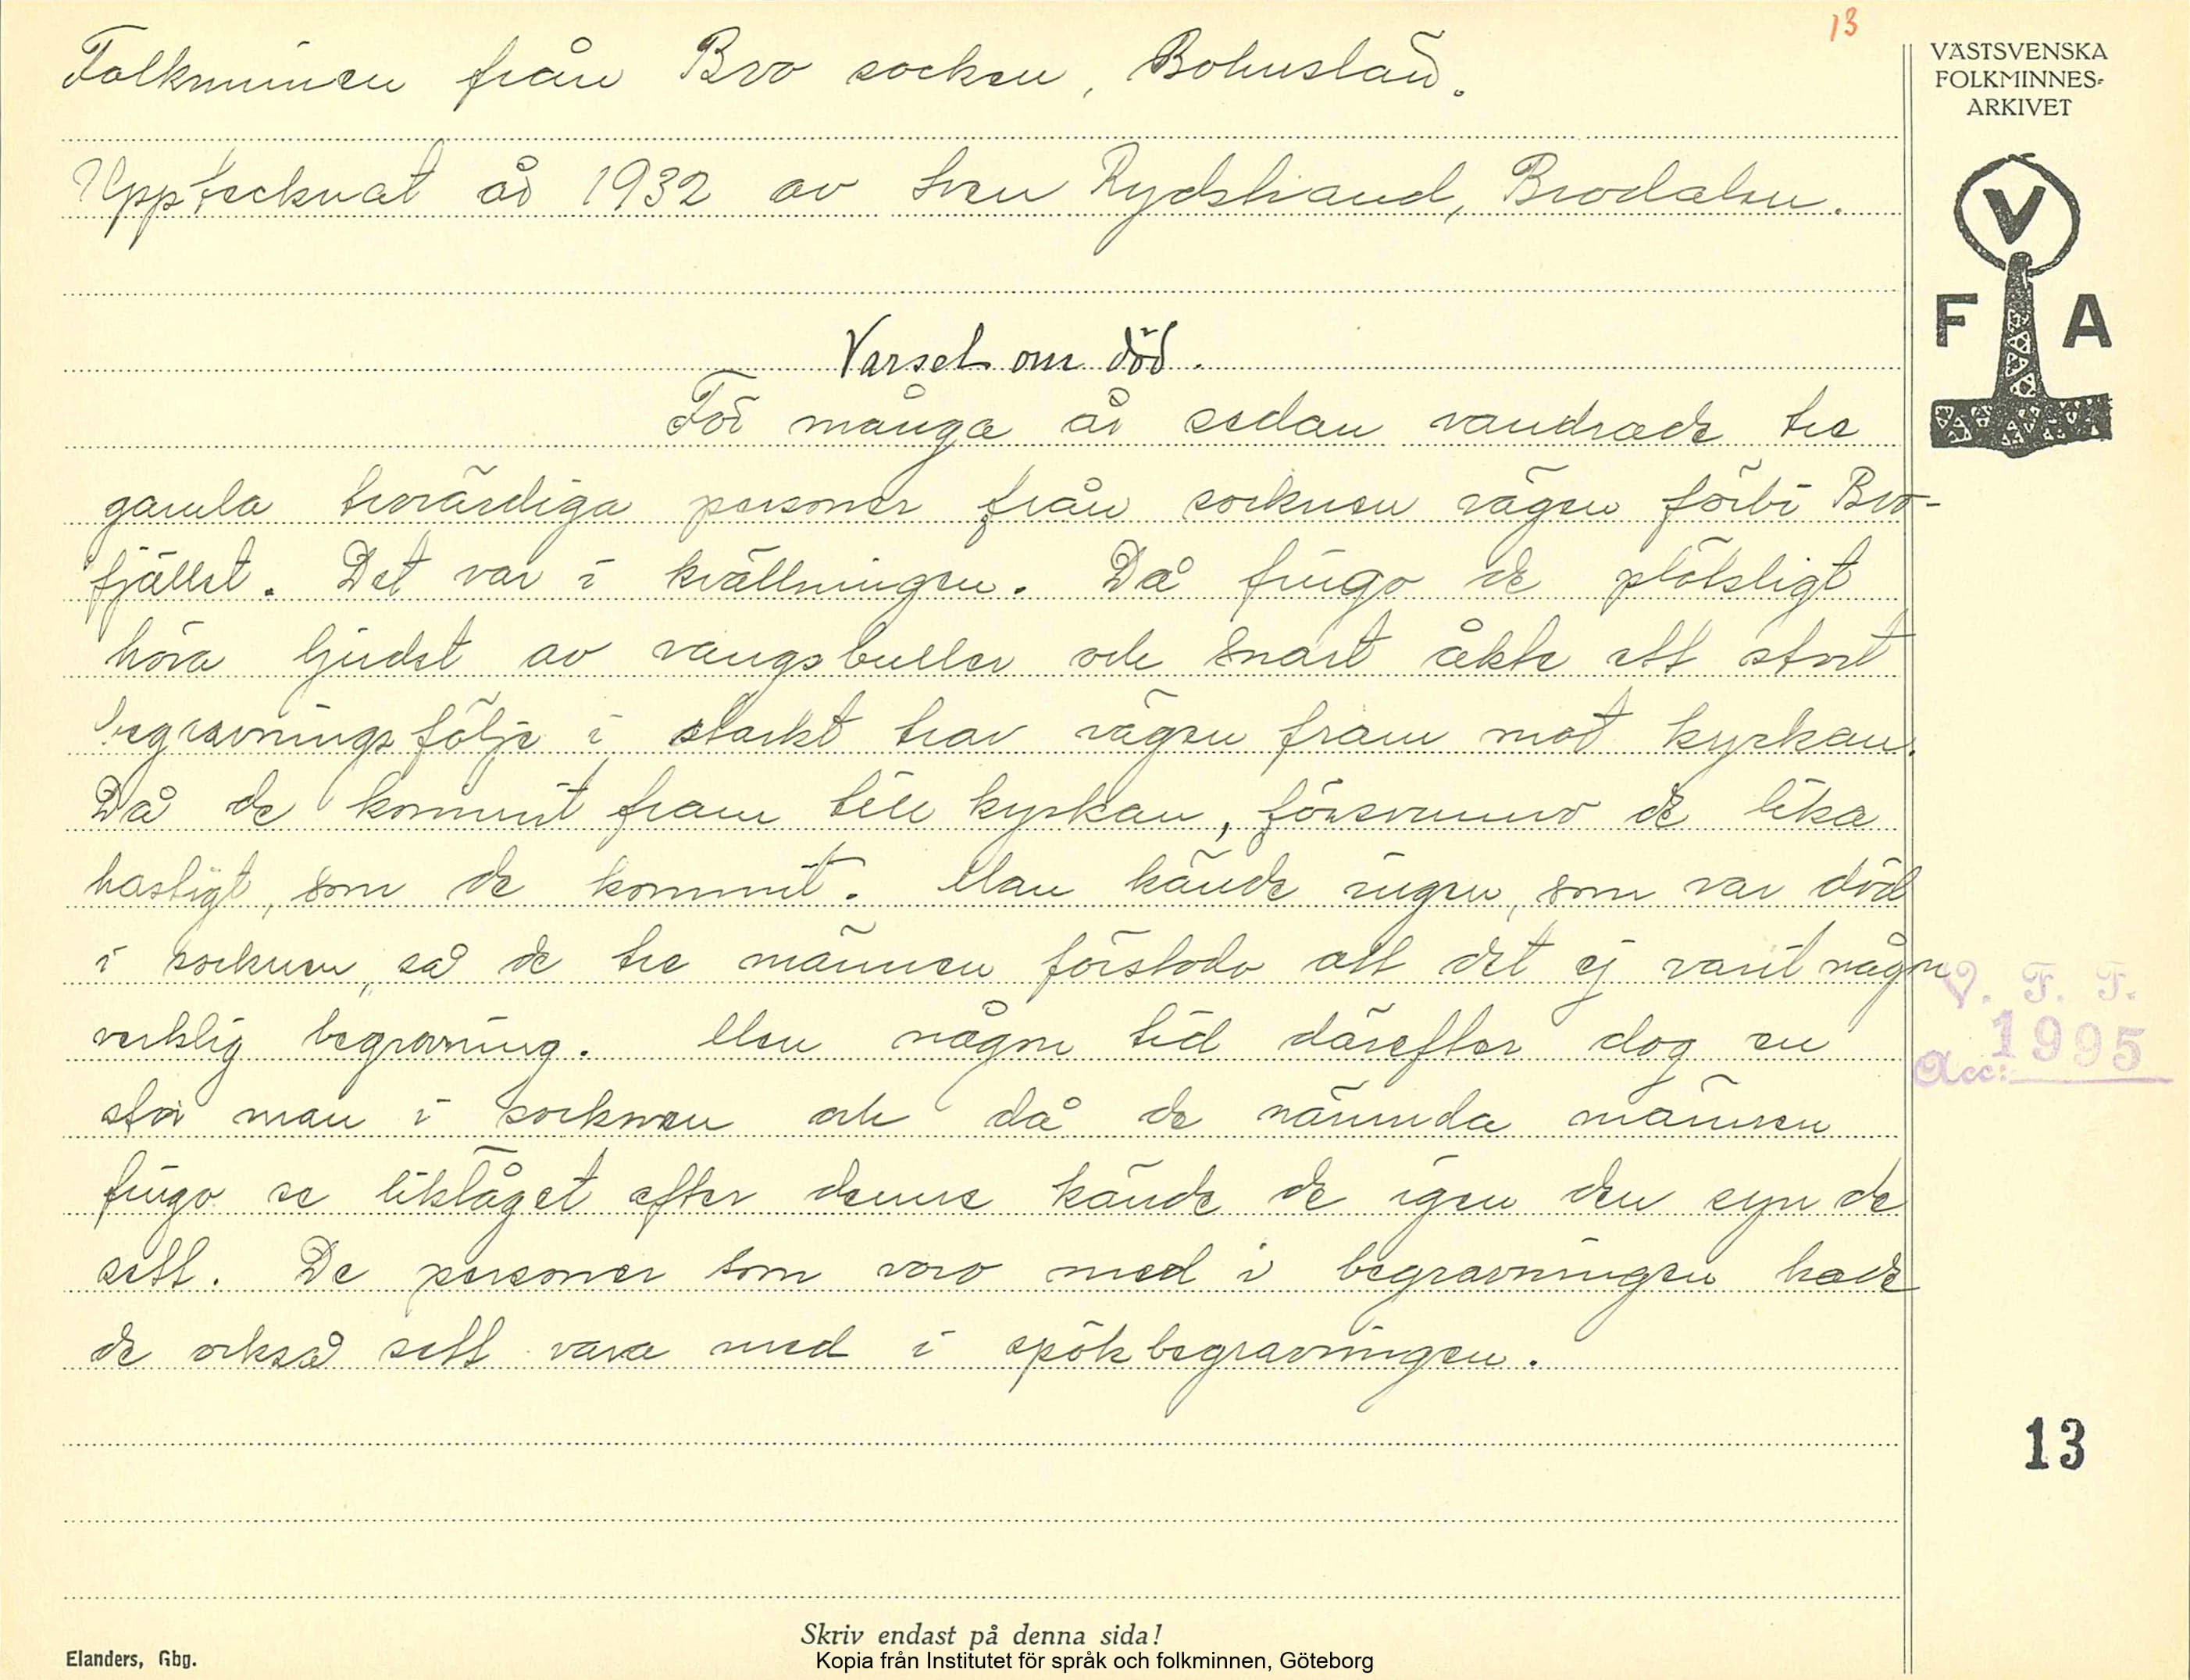 13
Folkminnen från Bro socken, Bohuslän.
Upptecknat år 1932 av Sven Rydstrand, Brodalen.
VÄSTSVENSKA
FOLKMINNES-
ARKIVET
V
F A
Varsel om död.
För många år sedan vandrade tre
gamla trovärdiga personer från socknen vägen förbi Bro-
fjället. Det var i kvällningen. Då fingo de plötsligt
höra ljudet av vangsbuller och snart åkte ett stort
begravningsfölje i starkt trav vägen fram mot kyrkan.
Då de kommit fram till kyrkan, försvunno de lika
hastigt, som de kommit. Man kände ingen, som var död
i socknen, så de tre männen förstodo att det ej varit någon
verklig begravning. Men någon tid därefter dog en
stor man i socknen och då de nämnda männen
fingo se liktåget efter denne kände de igen den syn de
sett. De personer som voro med i begravningen hade
de också sett vara med i spökbegravningen.
V. F. F.
Acc: 1995
13
Skriv endast på denna sida!
Elanders, Gbg.
Kopia från Institutet för språk och folkminnen, Göteborg